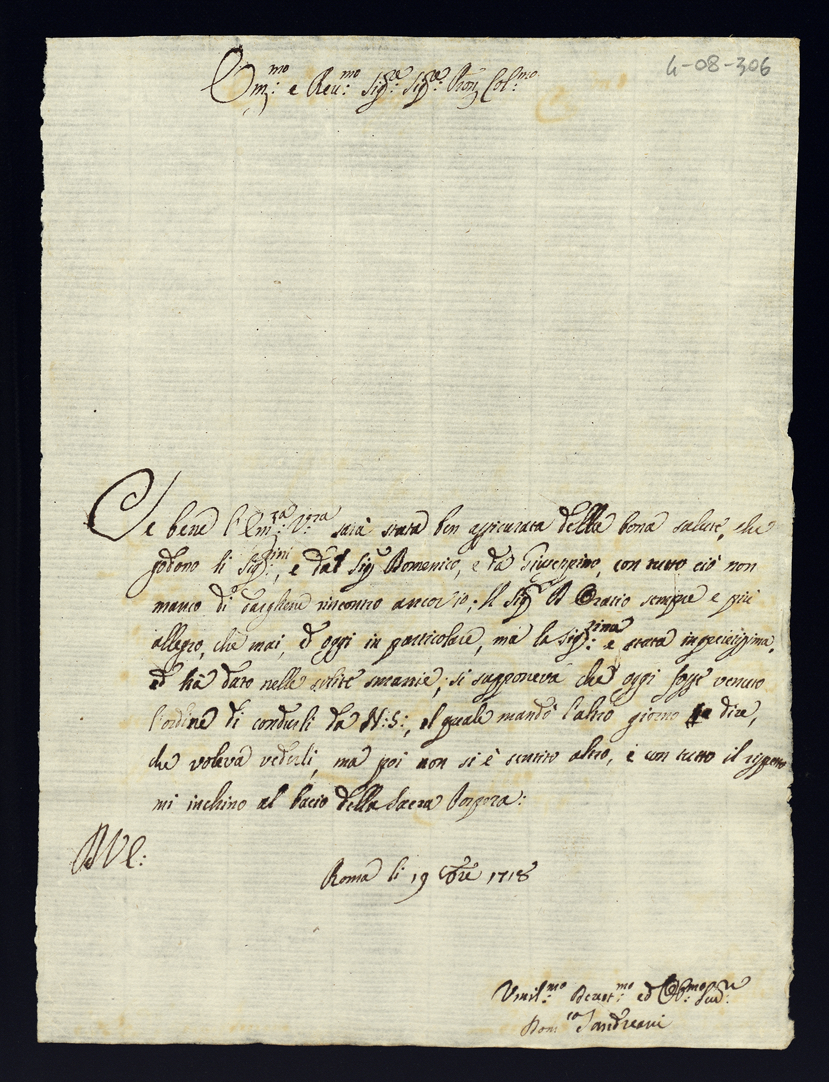 4-08-306
Em.mo e Reu.mo Sig.re Sig.re Pron Col.mo
Se bene l'Em.za V.ra sarà stata ben assicurata della bona salute, che
godono li Sig.rini, e dal Sig.r Domenico, e da Giuseppino, con tutto ciò non
manco di dargliene rincontro ancor io; Il Sig.r D. Oratio sempre è più
allegro, che mai, ed oggi in particolare, mà la Sig.rina è stata inquietissima,
ed hà dato nelle solite smanie; si supponeva che oggi fosse venuto
l'ordine di condurli da N:S:, il quale mandò l'altro giorno a dire,
che voleva vederli, ma poi non si è sentito altro, e con tutto il rispetto
mi inchino al bacio della Sacra Porpora:
D V E:
Roma li 19 8bre 1718
Umil.mo Devot.mo ed Obb.mo Ser.re
Dom.co Santreani